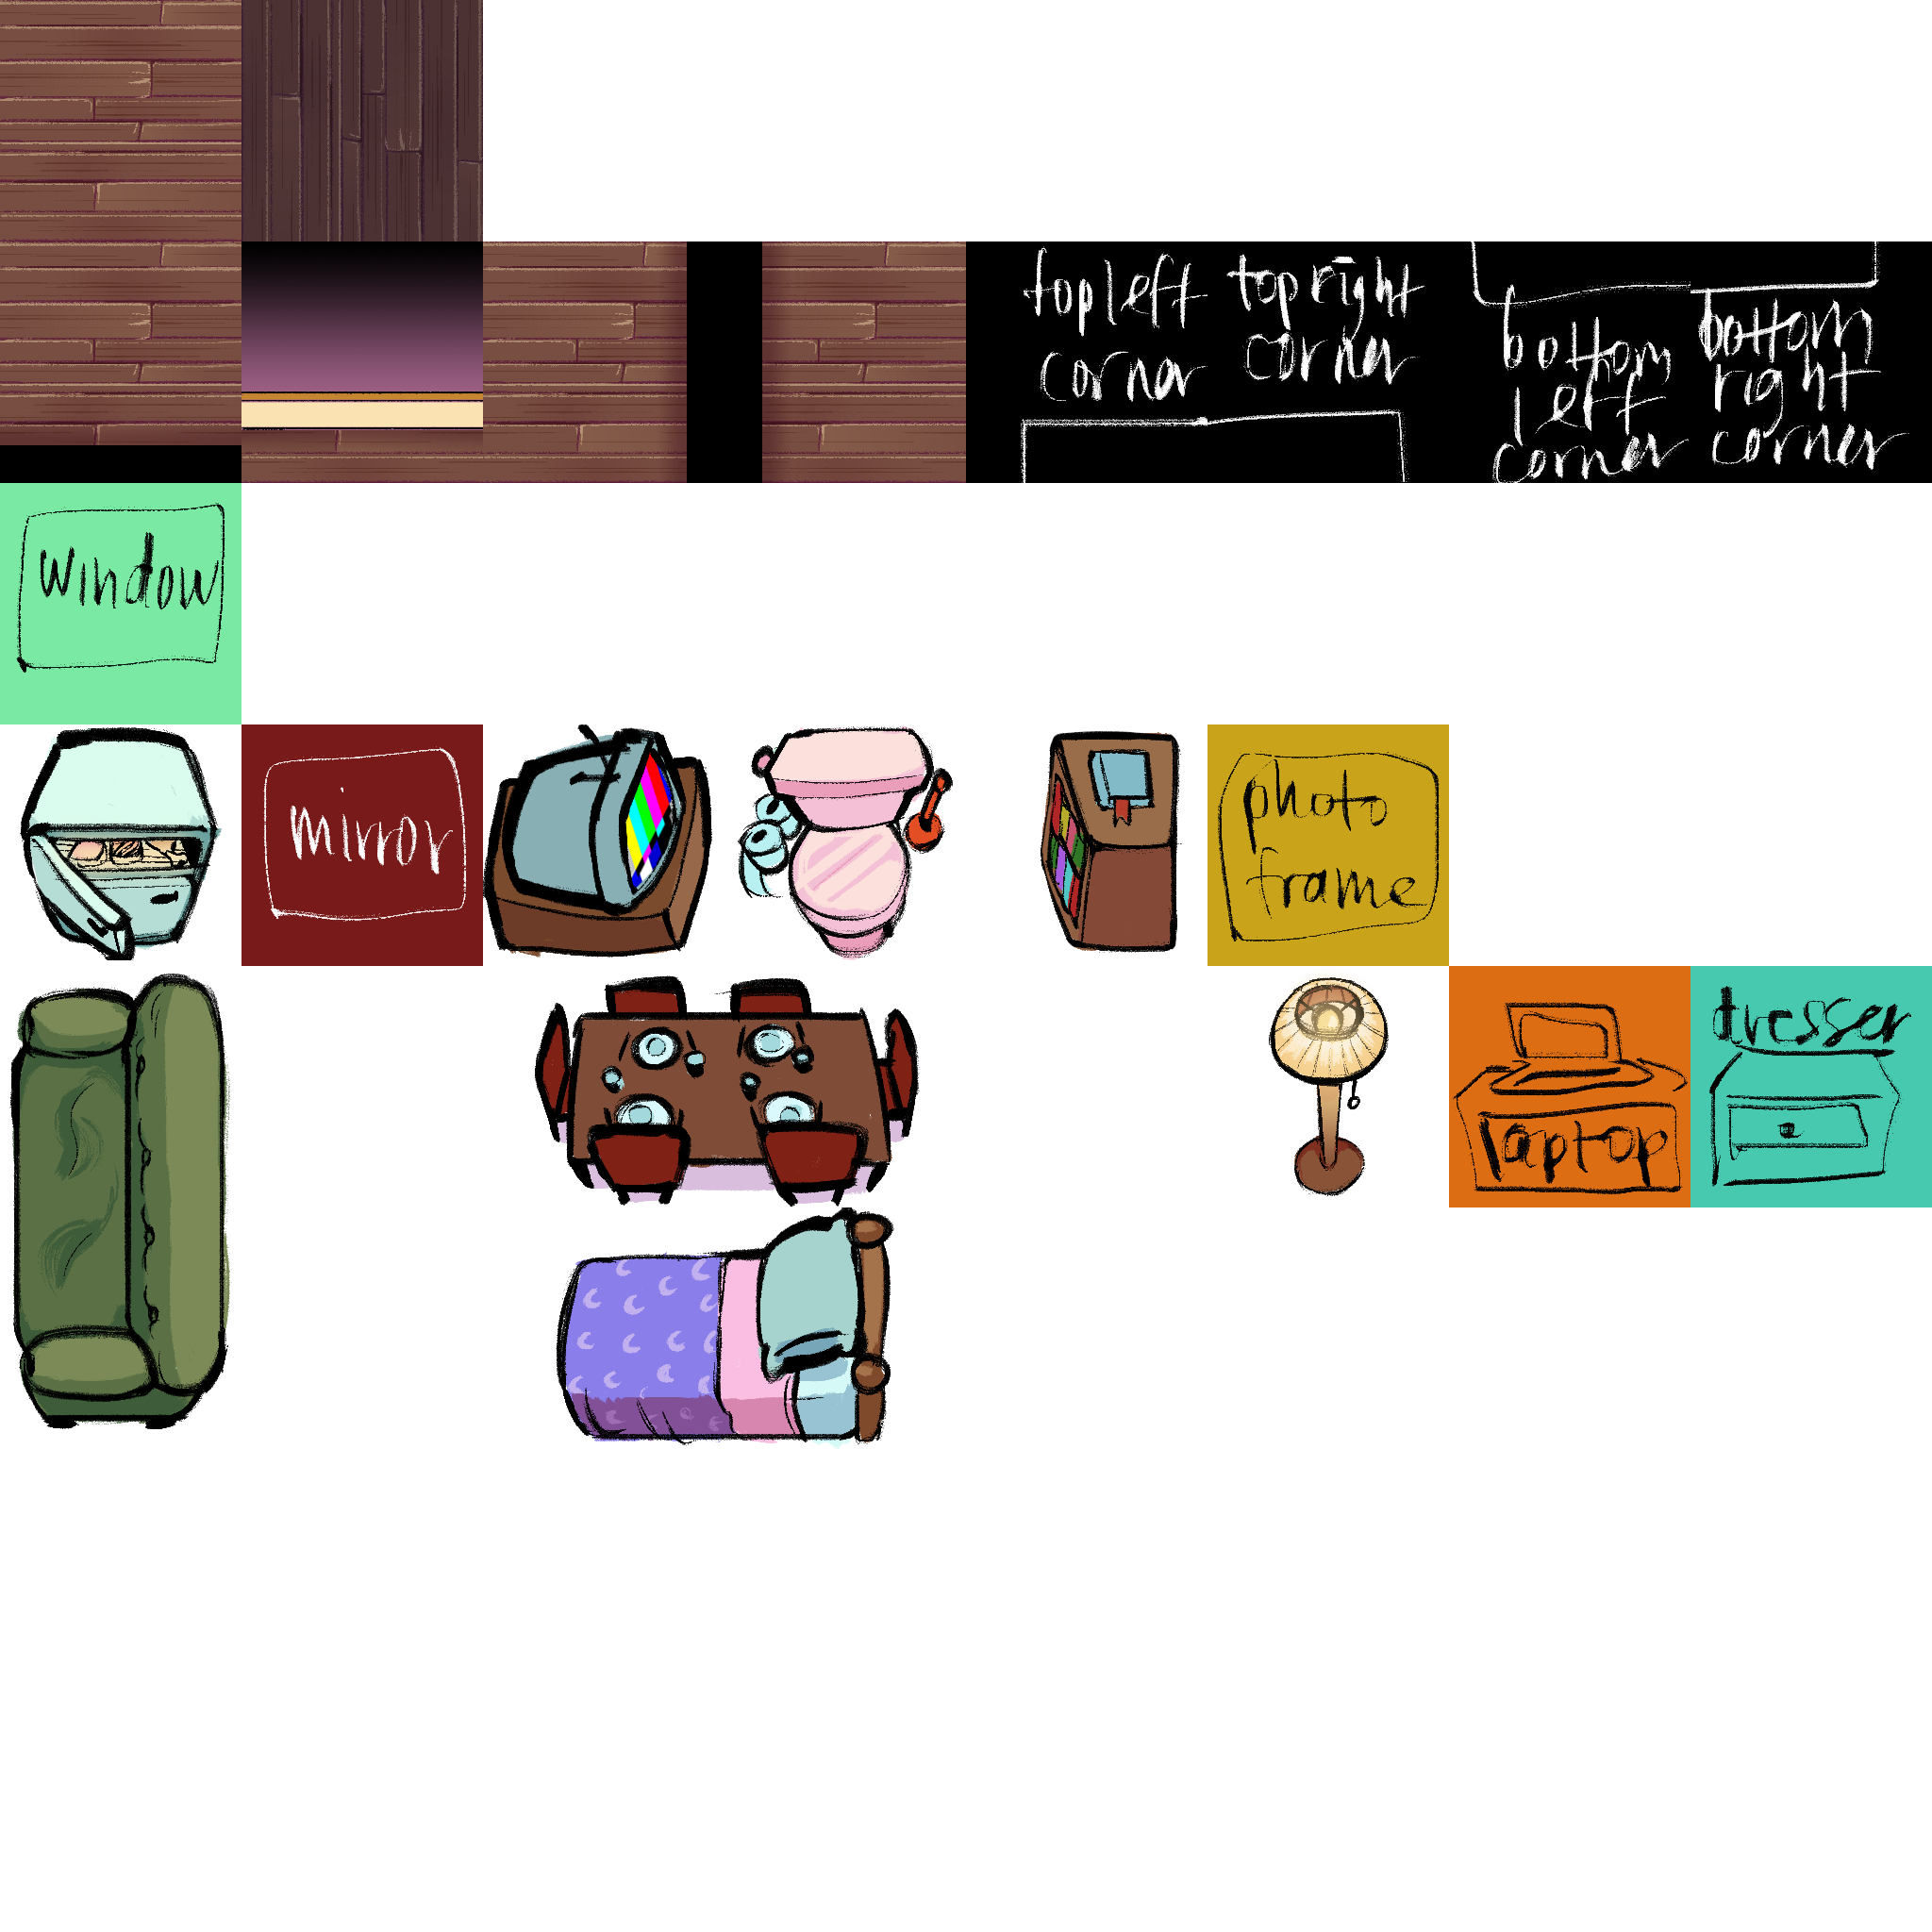 top left
corner
top right
corner
bottom
left
corner
bottom
right
corner
window
mirror
photo
frame
laptop
dresser